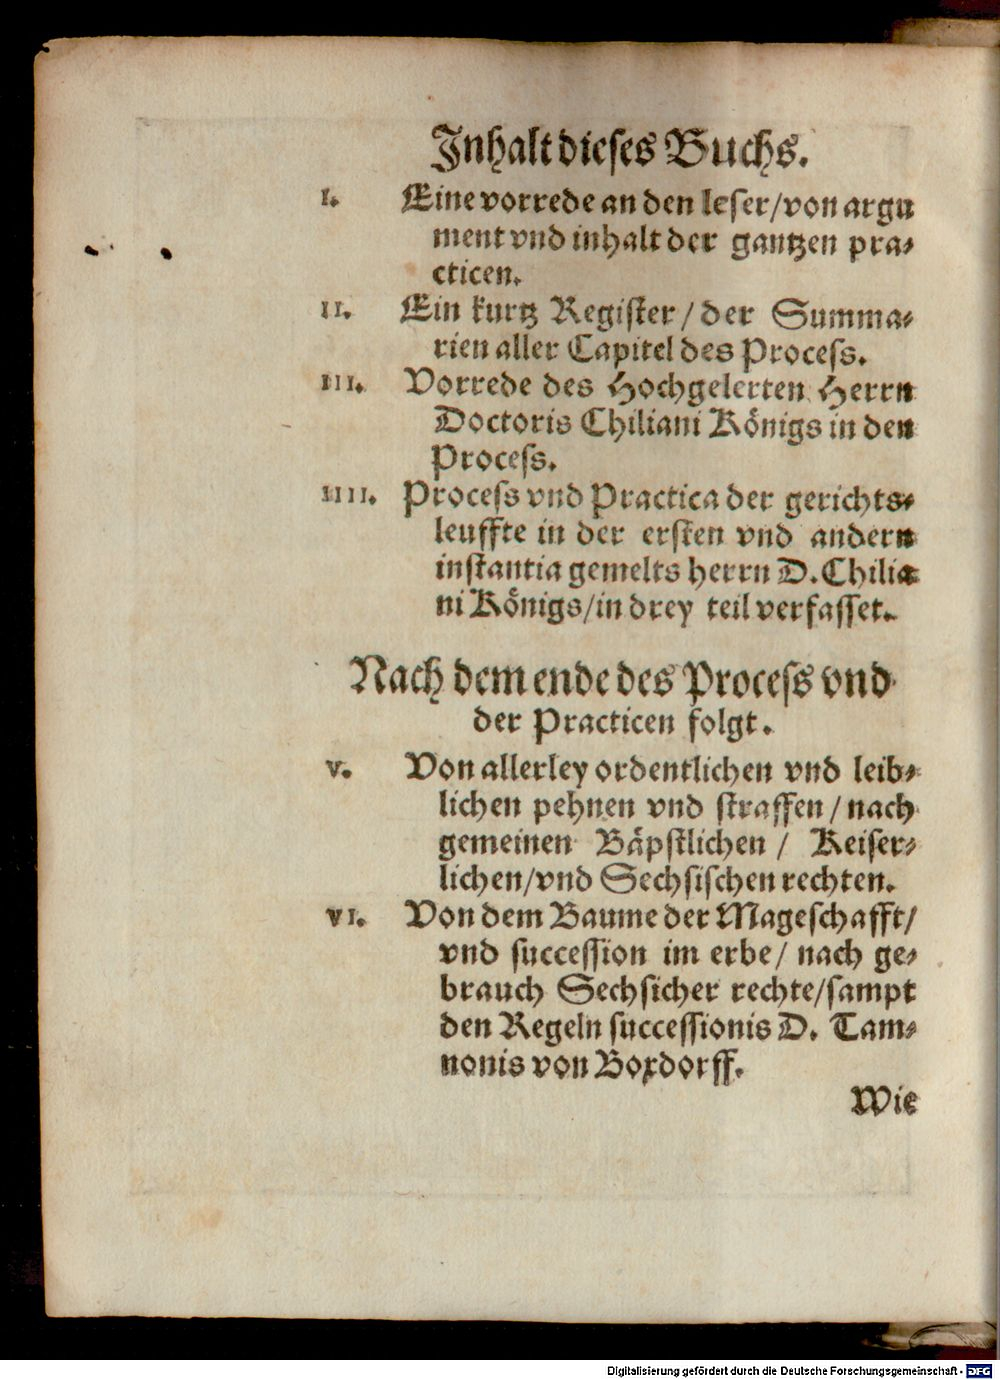 Inhalt dieses Buchs.
I. Eine vorrede an den leser/von argu
ment vnd inhalt der gantzen pra⸗
cticen.
II. Ein kurtz Register/der Summa⸗
rien aller Capitel des Process.
III. Vorrede des Hochgelerten Herrn
Doctoris Chiliani Königs in den
Process.
IIII. Process vnd Practica der gerichts⸗
leuffte in der ersten vnd andern
instantia gemelts herrn D. Chilia
ni Königs/in drey teil verfasset.
Nach dem ende des Process vnd
der Practicen folgt.
V. Von allerley ordentlichen vnd leib⸗
lichen pehnen vnd straffen/nach
gemeinen Bäpstlichen / Keiser⸗
lichen/vnd Sechsischen rechten.
VI. Von dem Baume der Mageschafft/
vnd succession im erbe/ nach ge⸗
brauch Sechsicher rechte/sampt
den Regeln successionis D. Tam⸗
nonis von Boxdorff.
Wie
Digitalisierung gefördert durch die Deutsche Forschungsgemeinschaft - DFG